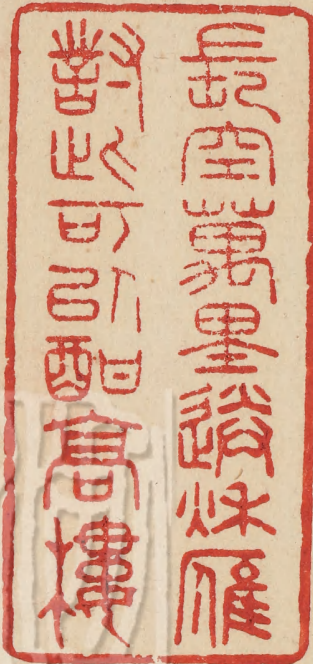 長空萬里送秋雁
對此可以酣高樓